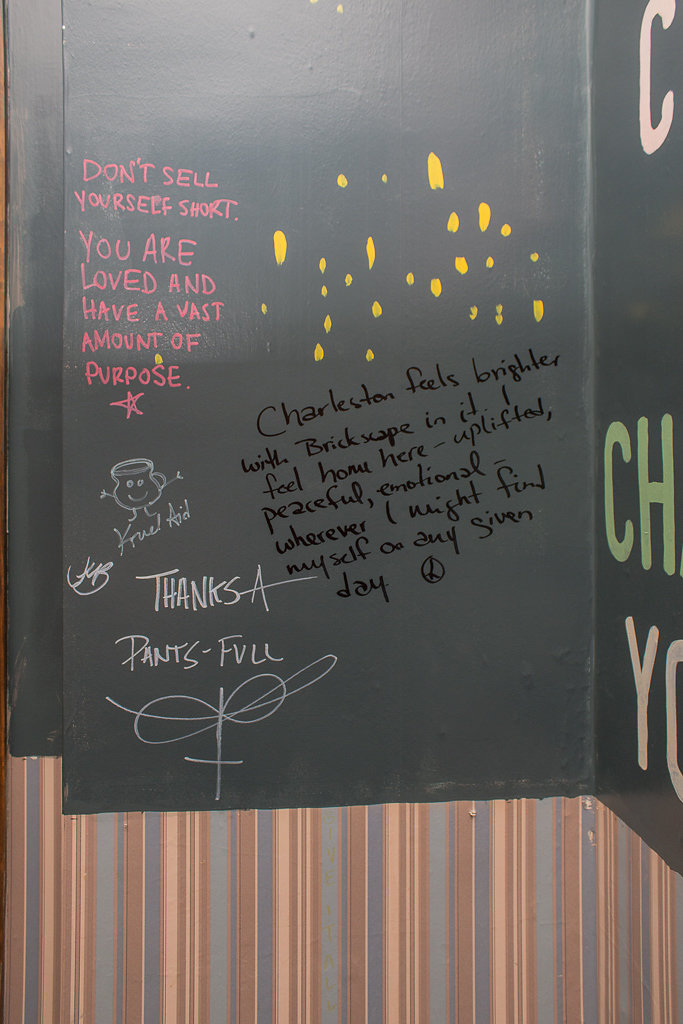 DON'T SELL
YOURSELF SHORT.
YOU ARE
LOVED AND
HAVE A VAST
AMOUNT OF
PURPOSE.
Charleston feels brighter
with Brickscape in it. I
feel home here - uplifted,
peaceful, emotional -
wherever I might find
myself on any given
day
Kruel Aid
THANKS A
PANTS-FULL
C
CHA
YO